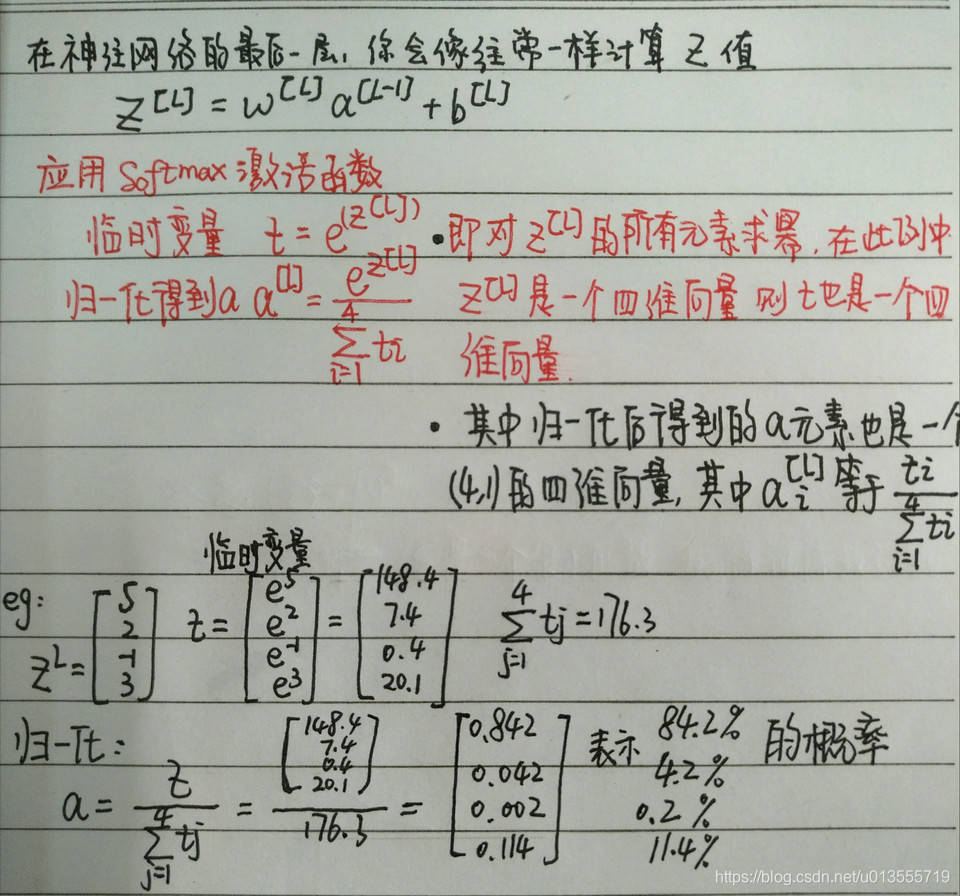 在神经网络的最后一层,你会像往常一样计算 Z 值
Z^[L] = w^[L] a^[L-1] + b^[L]
应用 Softmax 激活函数
临时变量 t = e^(Z^[L]) ·即对 Z^[L] 的所有元素求幂,在此例中
归一化得到a a^[L] = e^Z^[L] / ∑_{i=1}^{4} ti Z^[L] 是一个四维向量 则 t也是一个四
维向量.
· 其中归一化后得到的a元素也是一个
(4,1)的四维向量,其中a_i^[L] 等于 ti / ∑_{i=1}^{4} ti
临时变量
eg: Z^L = [5 2 -1 3] t = [e^5 e^2 e^-1 e^3] = [148.4 7.4 0.4 20.1] ∑_{j=1}^{4} tj = 176.3
归一化:
a = z / ∑_{j=1}^{4} tj = [148.4 7.4 0.4 20.1] / 176.3 = [0.842 0.042 0.002 0.114] 表示 84.2% 4.2% 0.2% 11.4% 的概率
https://blog.csdn.net/u013555719